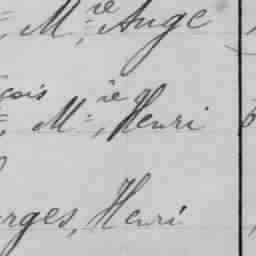 , Mie, Ange
çois, Mie, Henri
rges, Henri